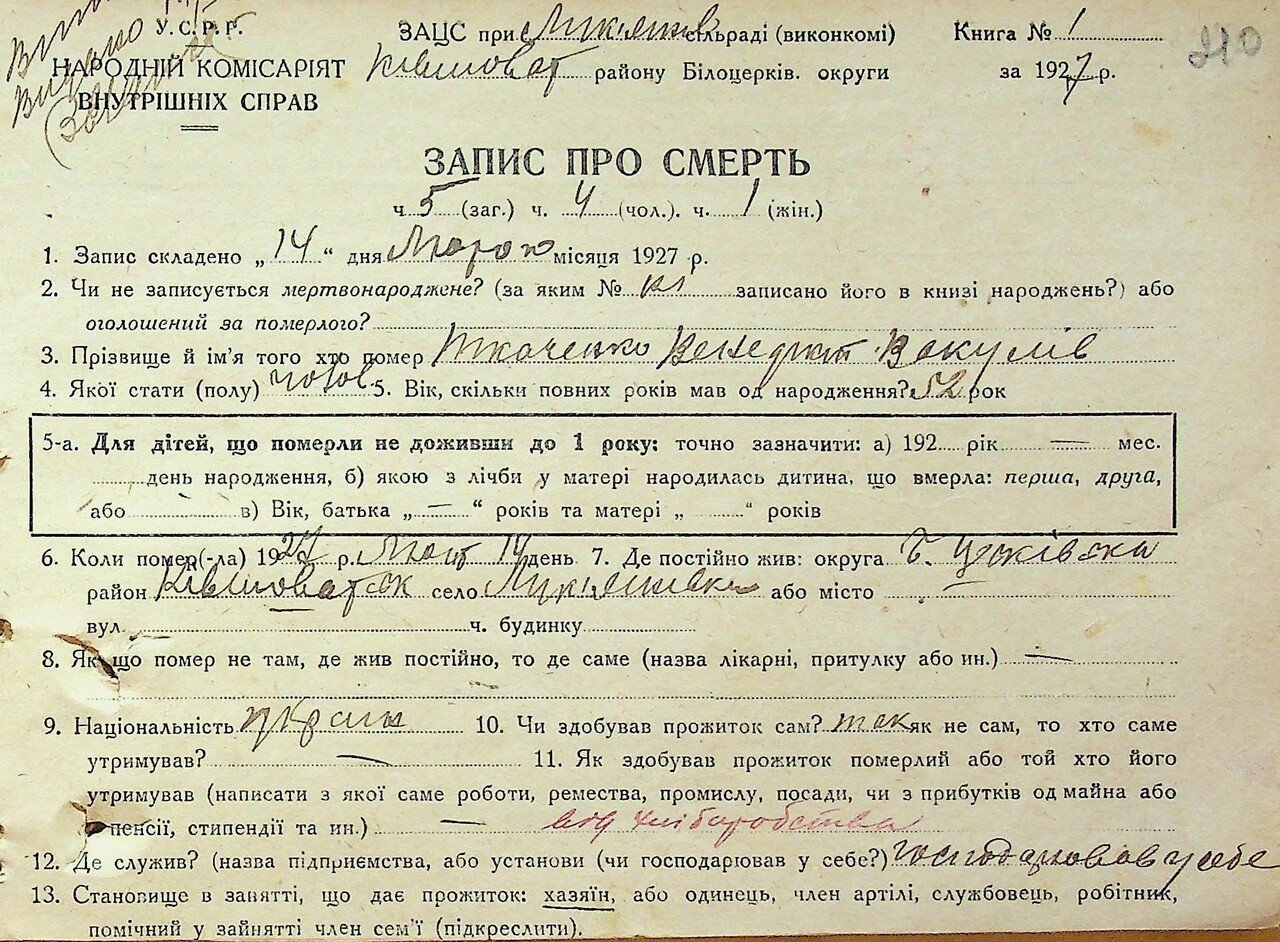 У.С.Р.Р.
НАРОДНІЙ КОМІСАРІЯТ
ВНУТРІШНІХ СПРАВ
ЗАЦС при Лукяшів сільраді (виконкомі)
Ківшоват району Білоцерків. округи
Книга № 1
за 1927 р.
210
ЗАПИС ПРО СМЕРТЬ
ч. 5 (заг.) ч. 4 (чол.). ч. 1 (жін.)
1. Запис складено „14“ дня місяця 1927 р.
2. Чи не записується мертвонароджене? (за яким № записано його в книзі народжень?) або
оголошений за померлого?
3. Прізвище й ім'я того хто помер Ткаченко Венедикт Вакулів
4. Якої стати (полу) чолов. 5. Вік, скільки повних років мав од народження? 52 рок
5-а. Для дітей, що померли не доживши до 1 року: точно зазначити: а) 192 рік — мес.
день народження, б) якою з лічби у матері народилась дитина, що вмерла: перша, друга,
або в) Вік, батька „—“ років та матері „ “ років
6. Коли помер(-ла) 1927 р. 14 день 7. Де постійно жив: округа Б. Церківська
район Ківшоватськ село Лукяшівка або місто
вул. ч. будинку
8. Як що помер не там, де жив постійно, то де саме (назва лікарні, притулку або ин.) —
9. Національність україн 10. Чи здобував прожиток сам? так як не сам, то хто саме
утримував? — 11. Як здобував прожиток померлий або той хто його
утримував (написати з якої саме роботи, ремества, промислу, посади, чи з прибутків од майна або
пенсії, стипендії та ин.) — від хліборобства
12. Де служив? (назва підприємства, або установи (чи господарював у себе?) господарював у себе
13. Становище в занятті, що дає прожиток: хазяїн, або одинець, член артілі, службовець, робітник,
помічний у зайнятті член сем'ї (підкреслити).